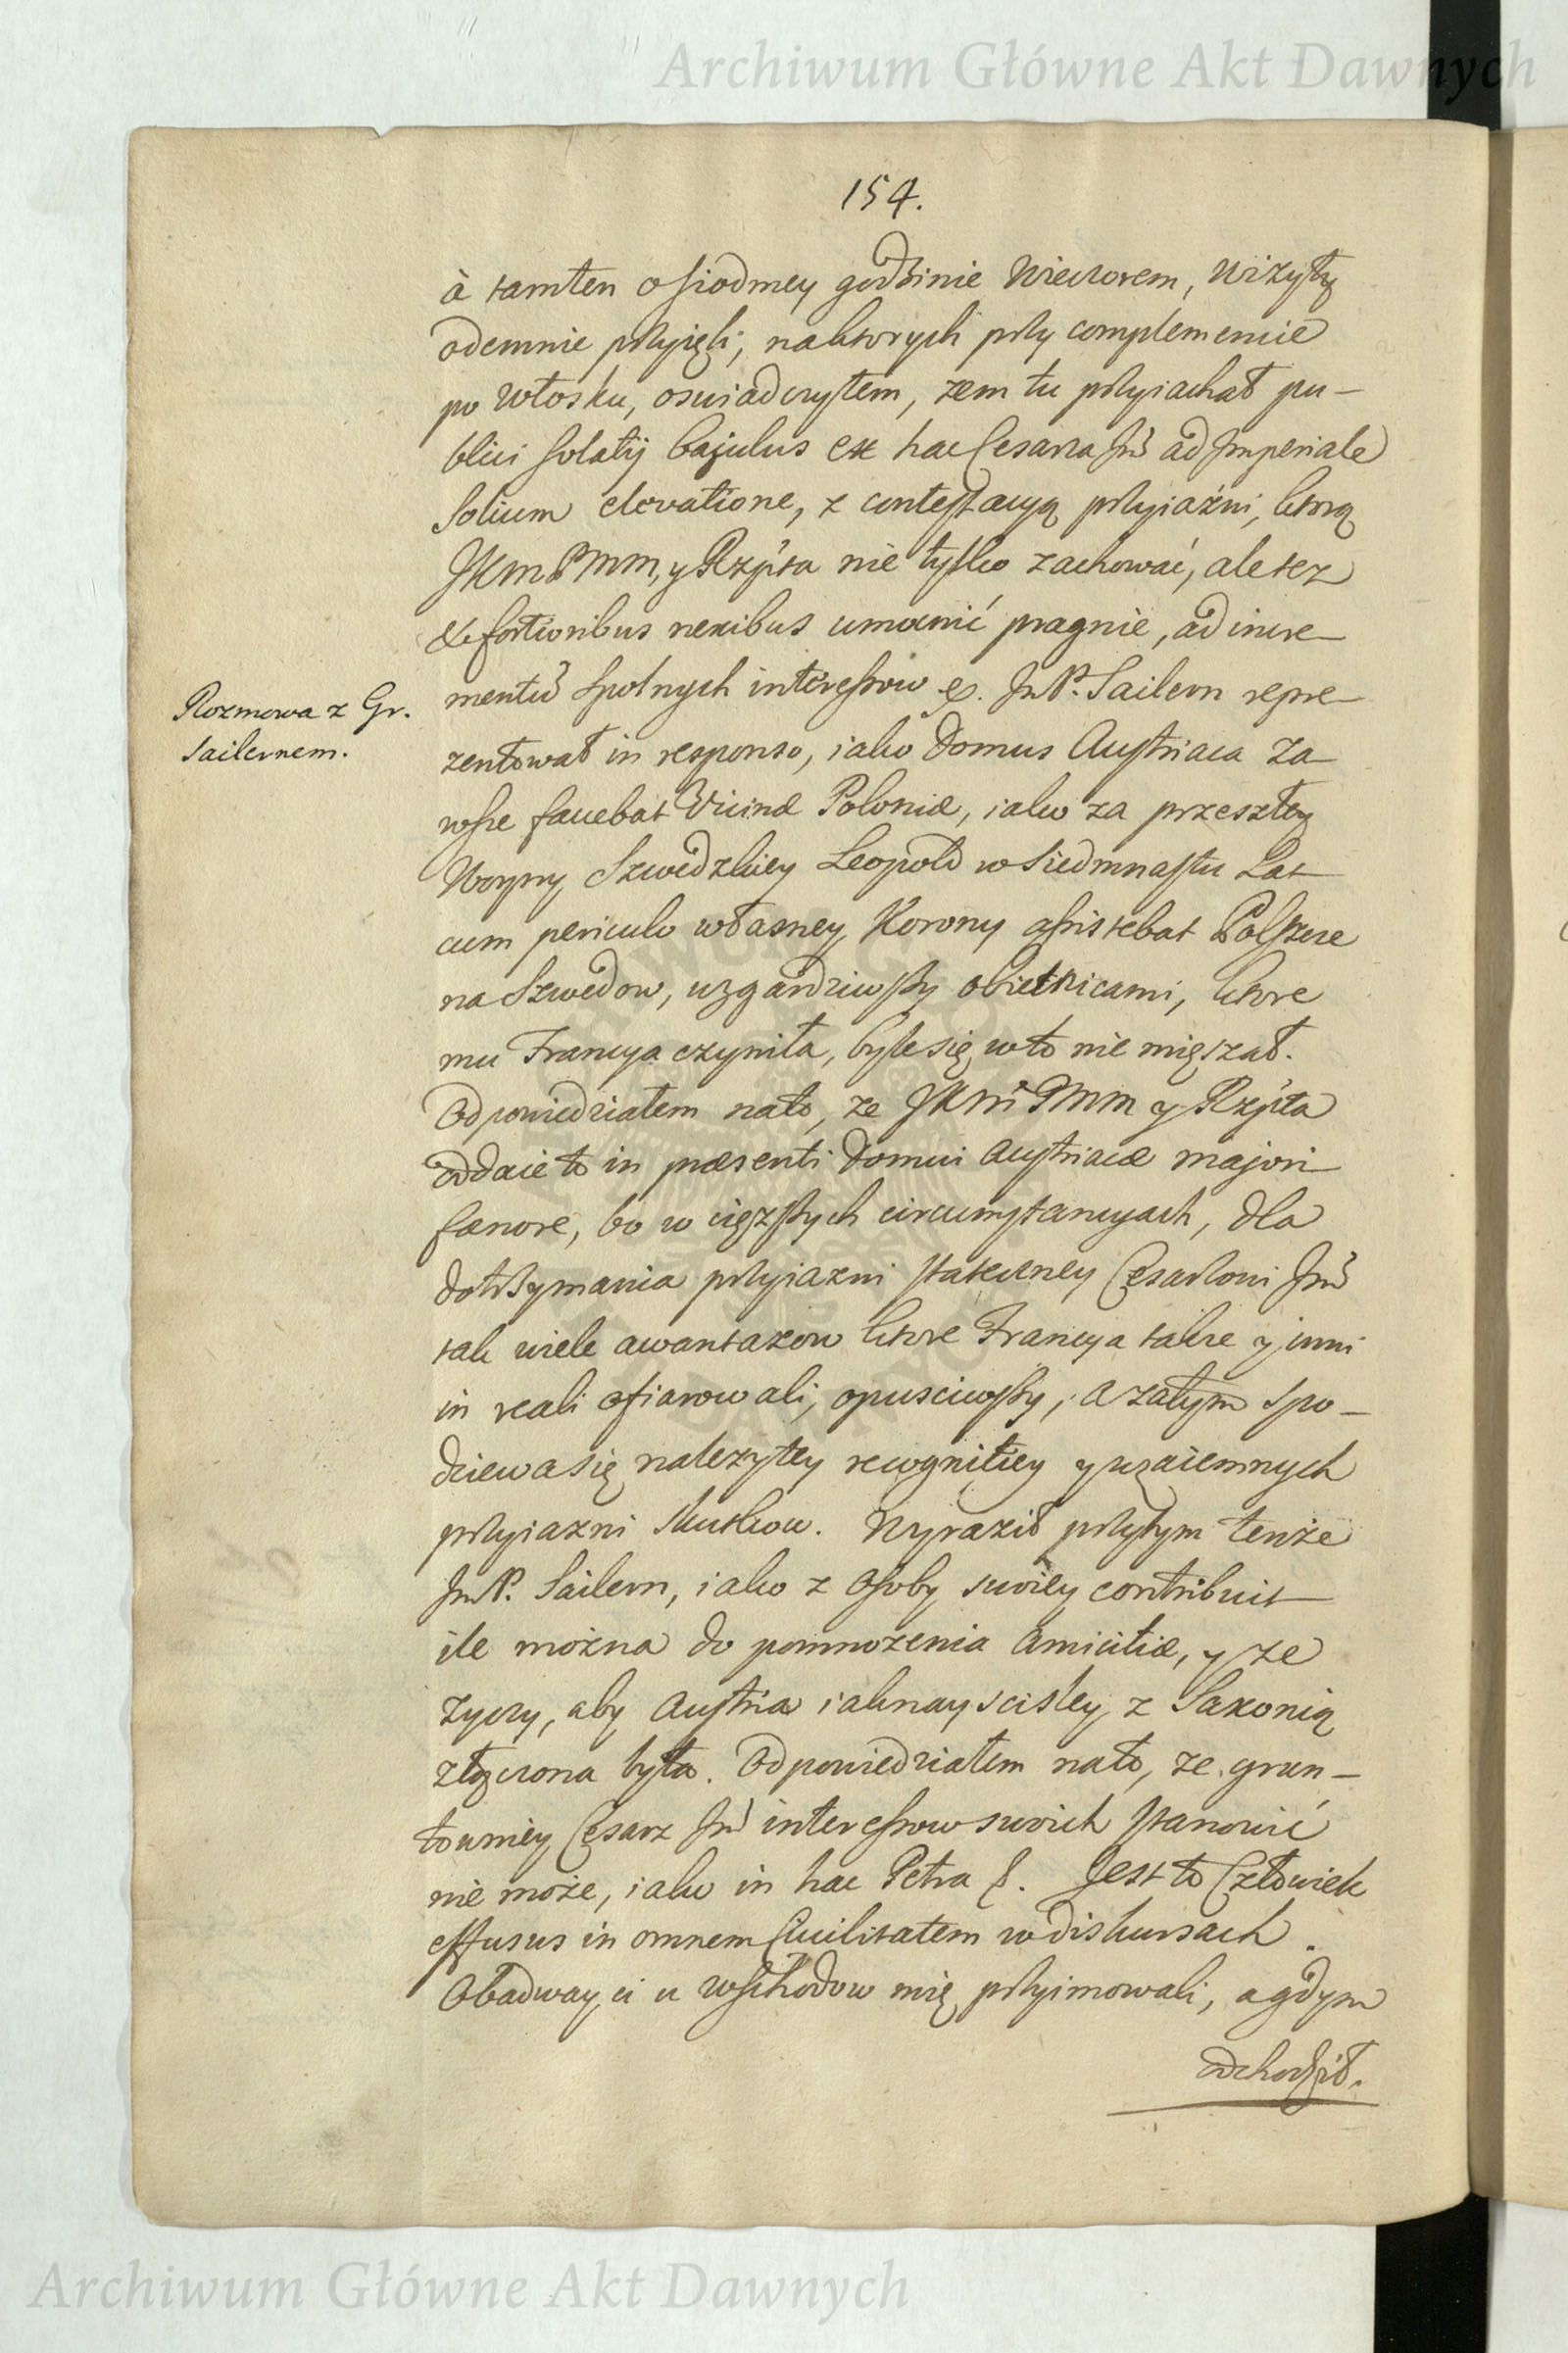 Archiwum Główne Akt Dawnych
154.
à tamten o siodmey godzinie Wieczorem, Wizyty
odemnie przyięli, naktorych przy complemencie
po Włosku, oswiadczyłem, zem tu przyiachał pu-
blici solatij bajulus ex hac Cesarza Jmci ad Imperiale
Solium elevatione, z contestacyą przyiaźni, ktorą
JKM PMM, y Rzpta nie tylko zachować, ale tez
& fortioribus nexibus umocnić pragnie, ad incre-
mentum spolnych interessow &. JmP. Sailern repre-
Rozmowa z Gr.
Sailernem.
zentował in responso, iako Domus Austriaca Za-
wsze fauebat Vicinæ Poloniæ, iako za przeszłey
Woyny Szwedzkiey Leopold w Siedmnastu Lat
cum periculo własney Korony assistebat Polszcze
na Szwedow, wzgardziwszy obietnicami, ktore
mu Francya czyniła, byle się w to nie mięszał.
Odpowiedziałem nato, ze JKM PMM y Rzpta
oddaie to in præsenti Domui Austriacæ majori
fænore, bo w cięzszych circumstancyach, dla
dotrzymania przyiazni statecznej Cesarzowi Jmci
tak wiele awantazow ktore Francya takze y inni
in reali ofiarowali, opusciwszy; a zatym spo-
dziewa się nalezytey recognitiey y wzaiemnych
przyiazni skutkow. Wyraził przytym tenże
JmP. Sailern, iako z Osoby swoiey contribuit
ile można do pomnozenia Amicitiæ, y ze
zyczy, aby Austria iaknayscisley z Saxonią
złączona była. Odpowiedziałem nato, ze grun-
towniey Cesarz Jmci interessow swoich stanowić
nie może, iako in hac Petra &. Jest to Człowiek
effusus in omnem Civilitatem w diskursach.
Obadway ci u Wschodow mię przyimowali, a gdym
odchodził.
Archiwum Główne Akt Dawnych